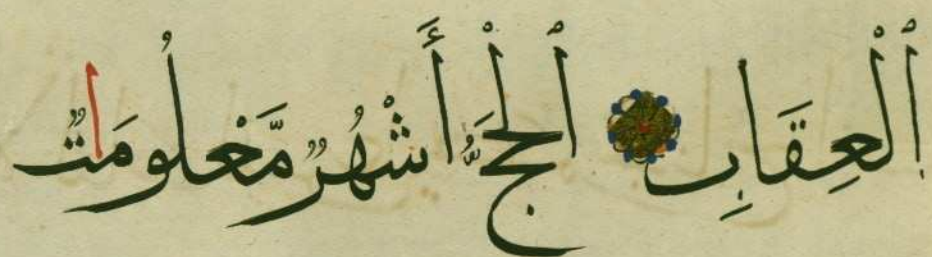 ٱلْعِقَابِ ۝ ٱلْحَجُّ أَشْهُرٌ مَّعْلُومَاتٌ